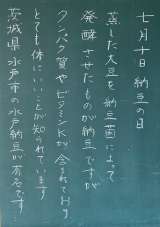 七月十日 納豆の日
蒸した大豆を納豆菌によって
発酵させたものが納豆ですが
タンパク質やビタミンKが含まれており
とても体にいいことが知られています
茨城県水戸市の水戸納豆が有名です